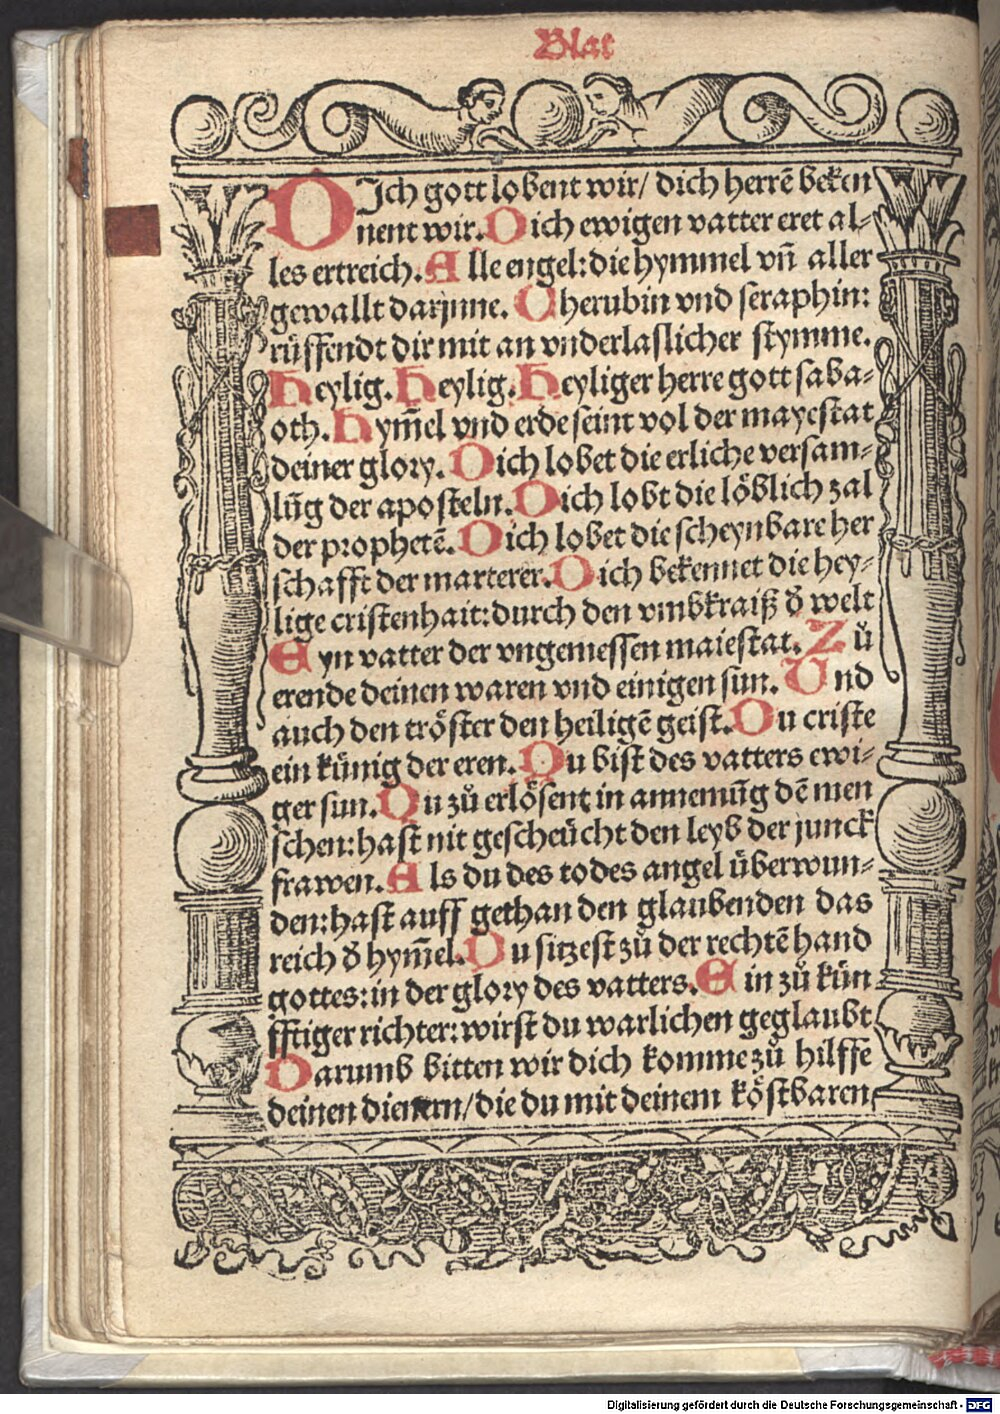 Blat
DJch gott lobent wir/ dich herrē beken
nent wir. Dich ewigen vatter eret al⸗
les ertreich. Alle engel: die hymmel vn̄ aller
gewallt darjnne. Cherubin vnd seraphin:
rüffendt dir mit an vnderlaslicher stymme.
Heylig. Heylig. Heyliger herre gott saba⸗
oth. Hym̄el vnd erde seint vol der mayestat
deiner glory. Dich lobet die erliche versam⸗
lūg der aposteln. Dich lobt die löblich zal
der prophetē. Dich lobet die scheynbare her
schafft der marterer. Dich bekennet die hey⸗
lige cristenhait: durch den vmbkraiß d̄ welt
Eyn vatter der vngemessen maiestat. Zů
erende deinen waren vnd einigen sun. Und
auch den tröster den heiligē geist. Du criste
ein künig der eren. Du bist des vatters ewi⸗
ger sun. Du zů erlösent in annemūg dē men
schen: hast nit gescheücht den leyb der junck
frawen. Als du des todes angel überwun⸗
den: hast auff gethan den glaubenden das
reich d̄ hym̄el. Du sitzest zů der rechtē hand
gottes: in der glory des vatters. Ein zů kün
fftiger richter: wirst du warlichen geglaubt
Darumb bitten wir dich komme zů hilffe
deinen dienern/ die du mit deinem köstbaren
Digitalisierung gefördert durch die Deutsche Forschungsgemeinschaft - DFG